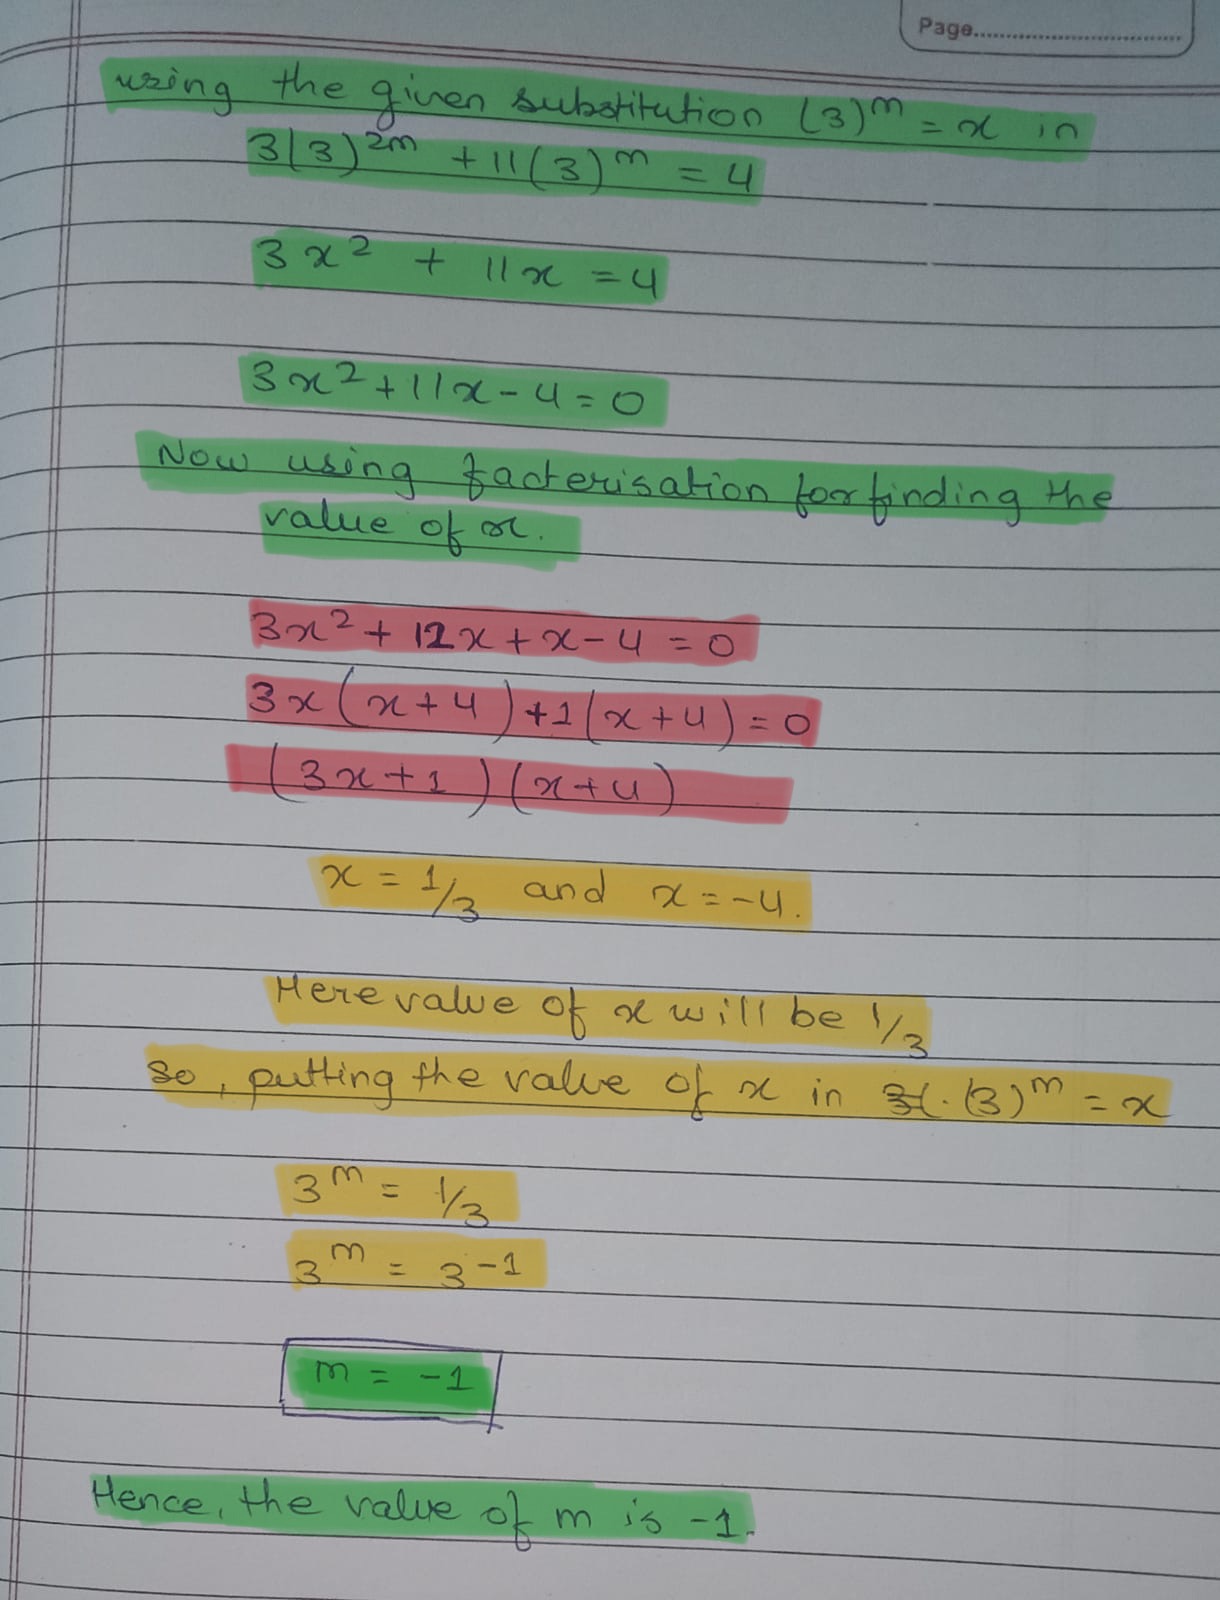 Page
using the given substitution (3)^m = x in
3(3)^2m + 11(3)^m = 4
3x² + 11x = 4
3x² + 11x - 4 = 0
Now using facterisation for finding the
value of x.
3x² + 12x + x - 4 = 0
3x(x+4) + 1(x+4) = 0
(3x+1)(x+4)
x = 1/3 and x = -4.
Here value of x will be 1/3
So, putting the value of x in (3)^m = x
3^m = 1/3
3^m = 3^-1
m = -1
Hence, the value of m is -1.